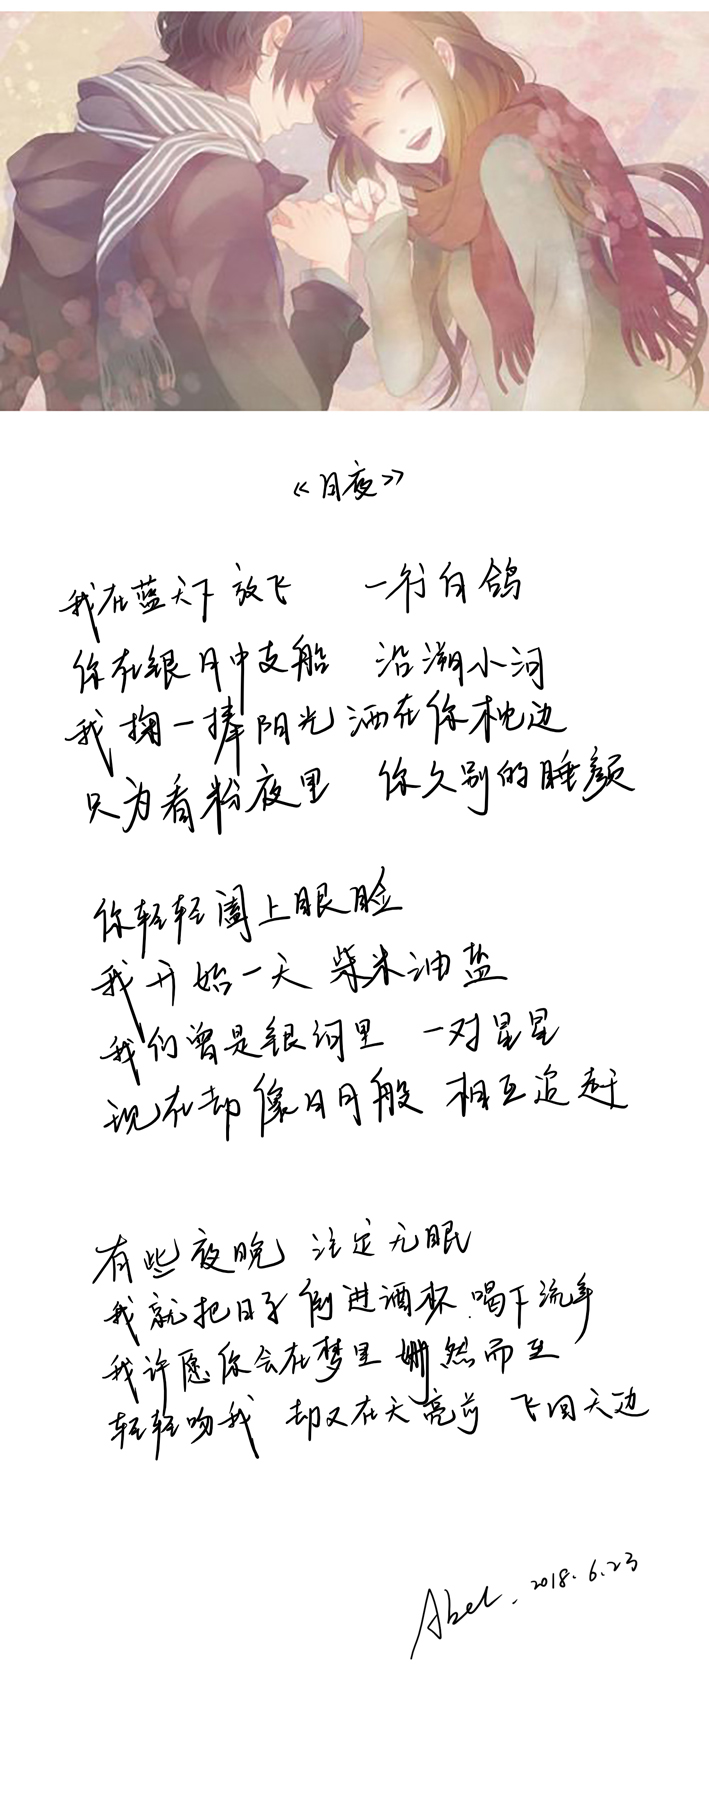 《日夜》
我在蓝天下放飞 一行白鸽
你在银月中支船 沿溯小河
我掬一捧阳光 洒在你枕边
只为看粉夜里 你久别的睡颜
你轻轻阖上眼睑
我开始一天 柴米油盐
我们曾是银河里 一对星星
现在却像日月般 相互追赶
有些夜晚 注定无眠
我就把日子倒进酒杯 喝下流年
我许愿你会在梦里 姗然而至
轻轻吻我 却又在天亮前 飞回天边
Abel. 2018.6.23